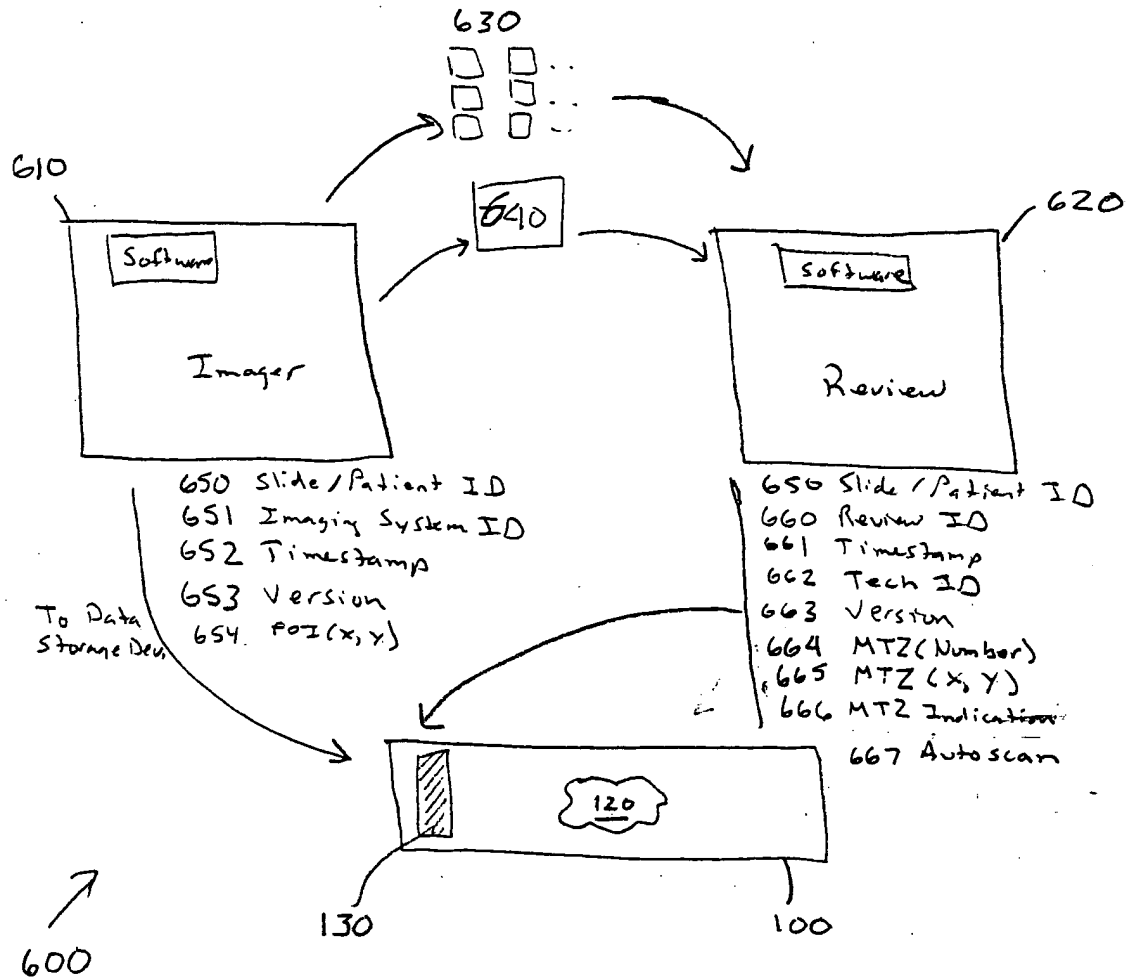 630
610
640
620
Software
Software
Imager
Review
650 Slide/Patient ID
651 Imaging System ID
652 Timestamp
653 Version
654. POI(x,y)
To Data
Storage Dev.
650 Slide/Patient ID
660 Review ID
661 Timestamp
662 Tech ID
663 Version
664 MTZ(Number)
665 MTZ(X, Y)
666 MTZ Indication
667 Autoscan
120
130
100
600